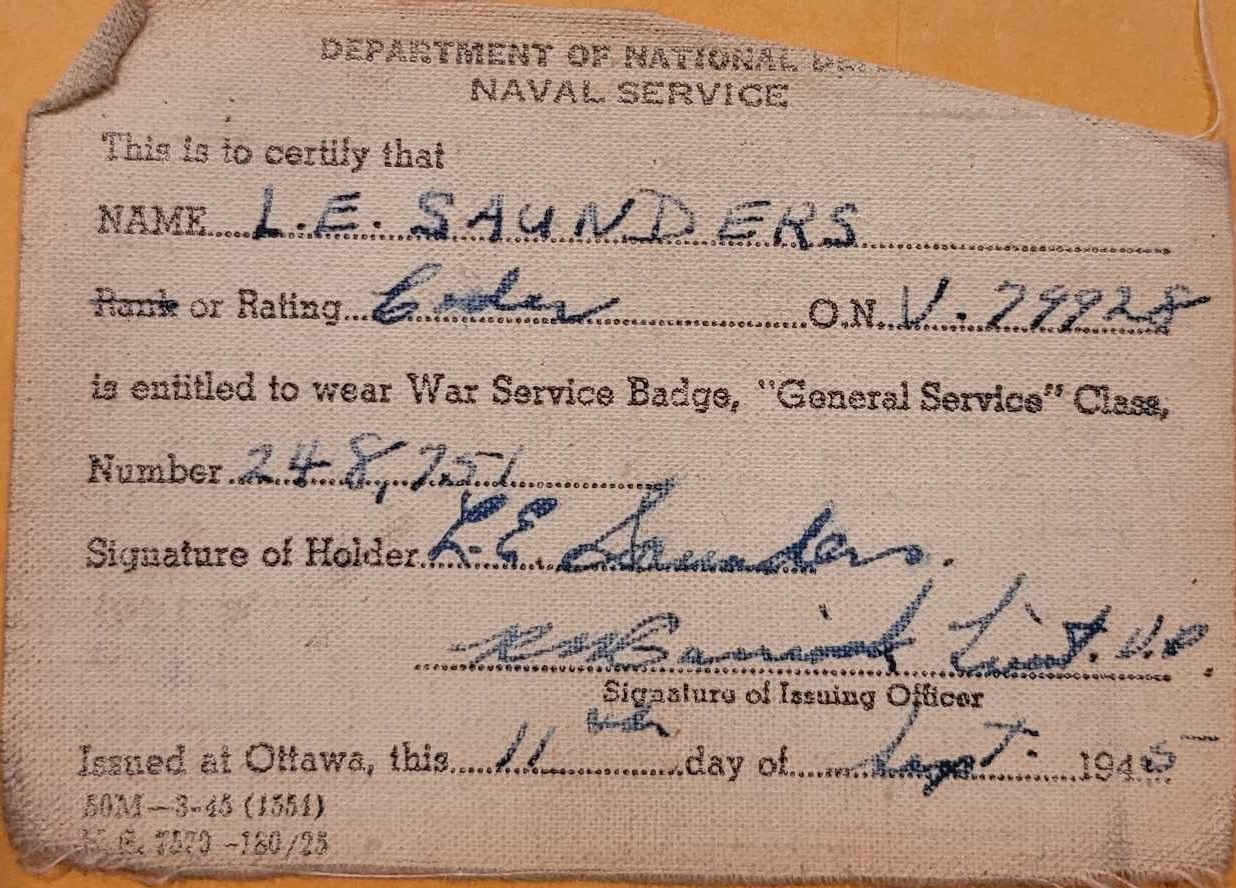 DEPARTMENT OF NATIONAL
NAVAL SERVICE
This is to certify that
NAME L.E. SAUNDERS
Rank or Rating Coder O.N. V. 79928
is entitled to wear War Service Badge, "General Service" Class,
Number 248,751
Signature of Holder L.E. Saunders.
Lieut. V.R.
Signature of Issuing Officer
Issued at Ottawa, this 11th day of Sept. 1945
50M—3-45 (1551)
7570 -180/25